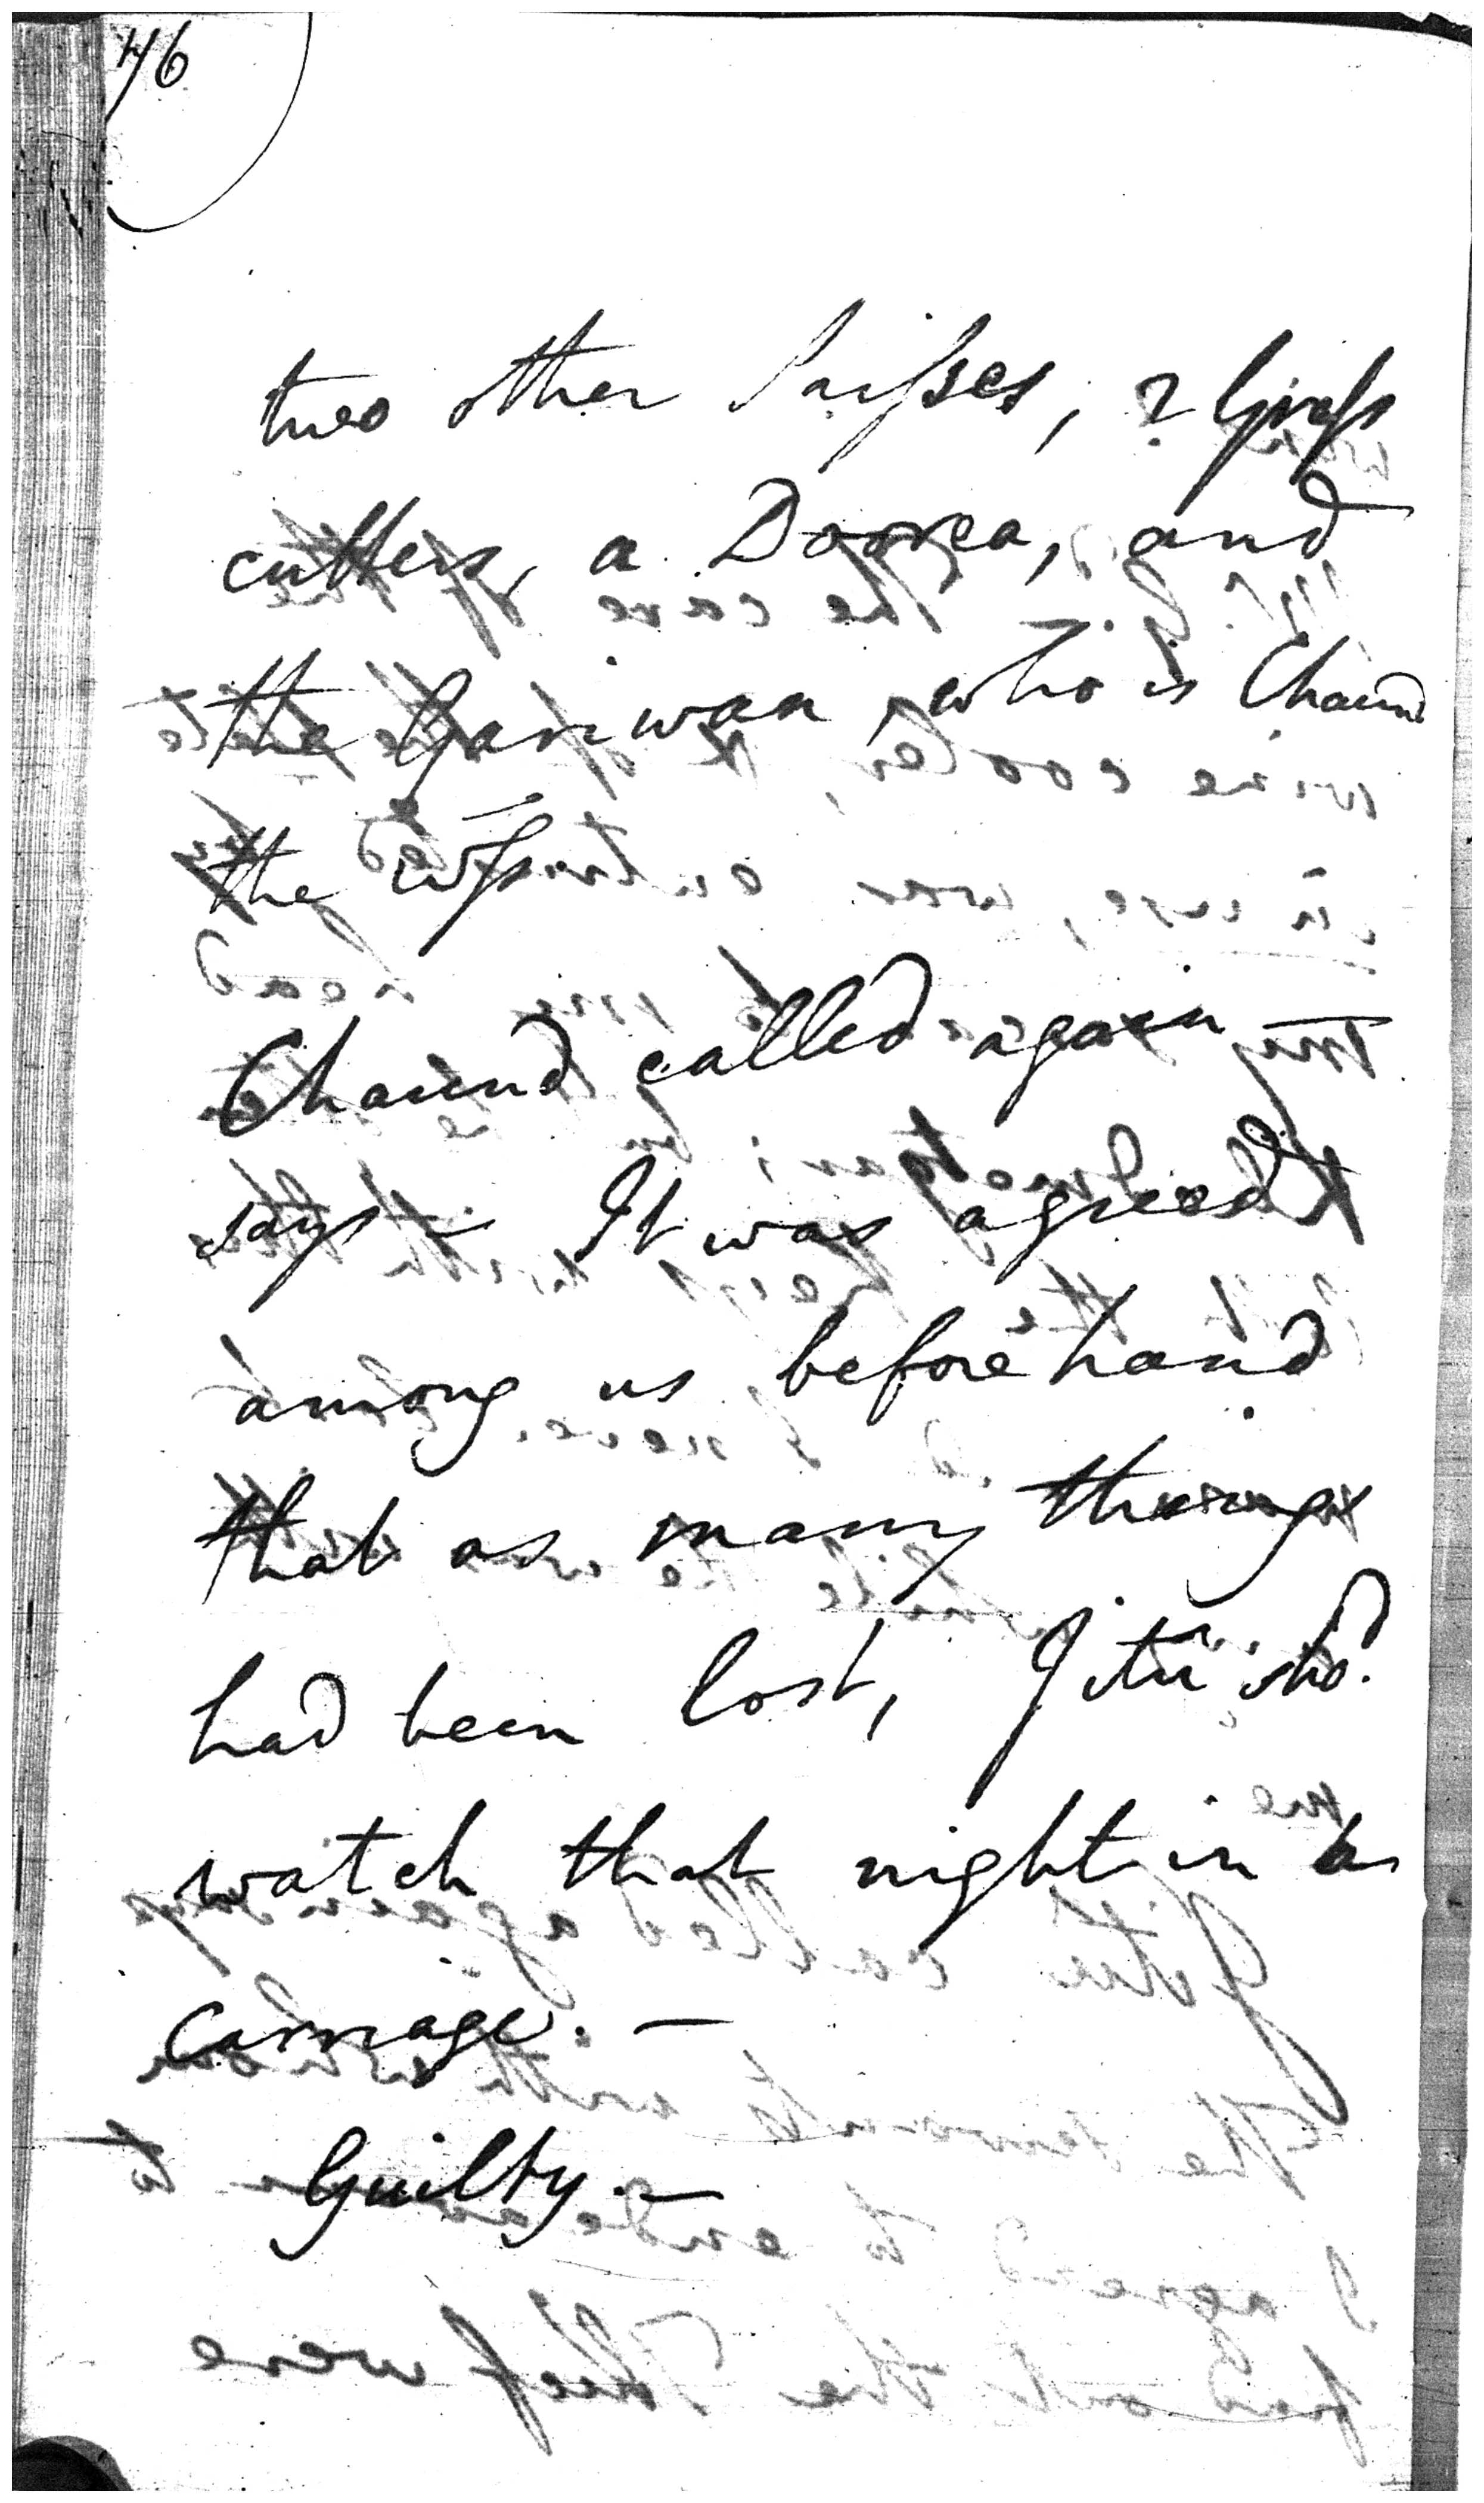 46
two other Saisses, 2 Grass
cutters, a Doorea, and
the Gariwan, who is Chaund
the witss
Chaund called again —
says — It was agreed
among us beforehand
that as many things
had been lost, Jitu shod.
watch that night in a
carriage. —
Guilty. —